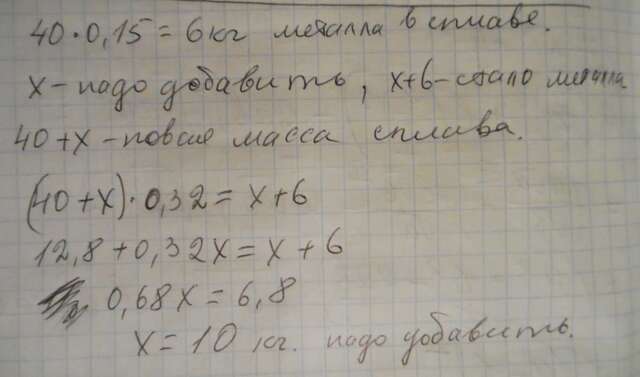 40·0,15=6кг металла в сплаве.
x-надо добавить, x+6-стало металла
40+x-новая масса сплава.
(40+x)·0,32=x+6
12,8+0,32x=x+6
0,68x=6,8
x=10 кг. надо добавить.